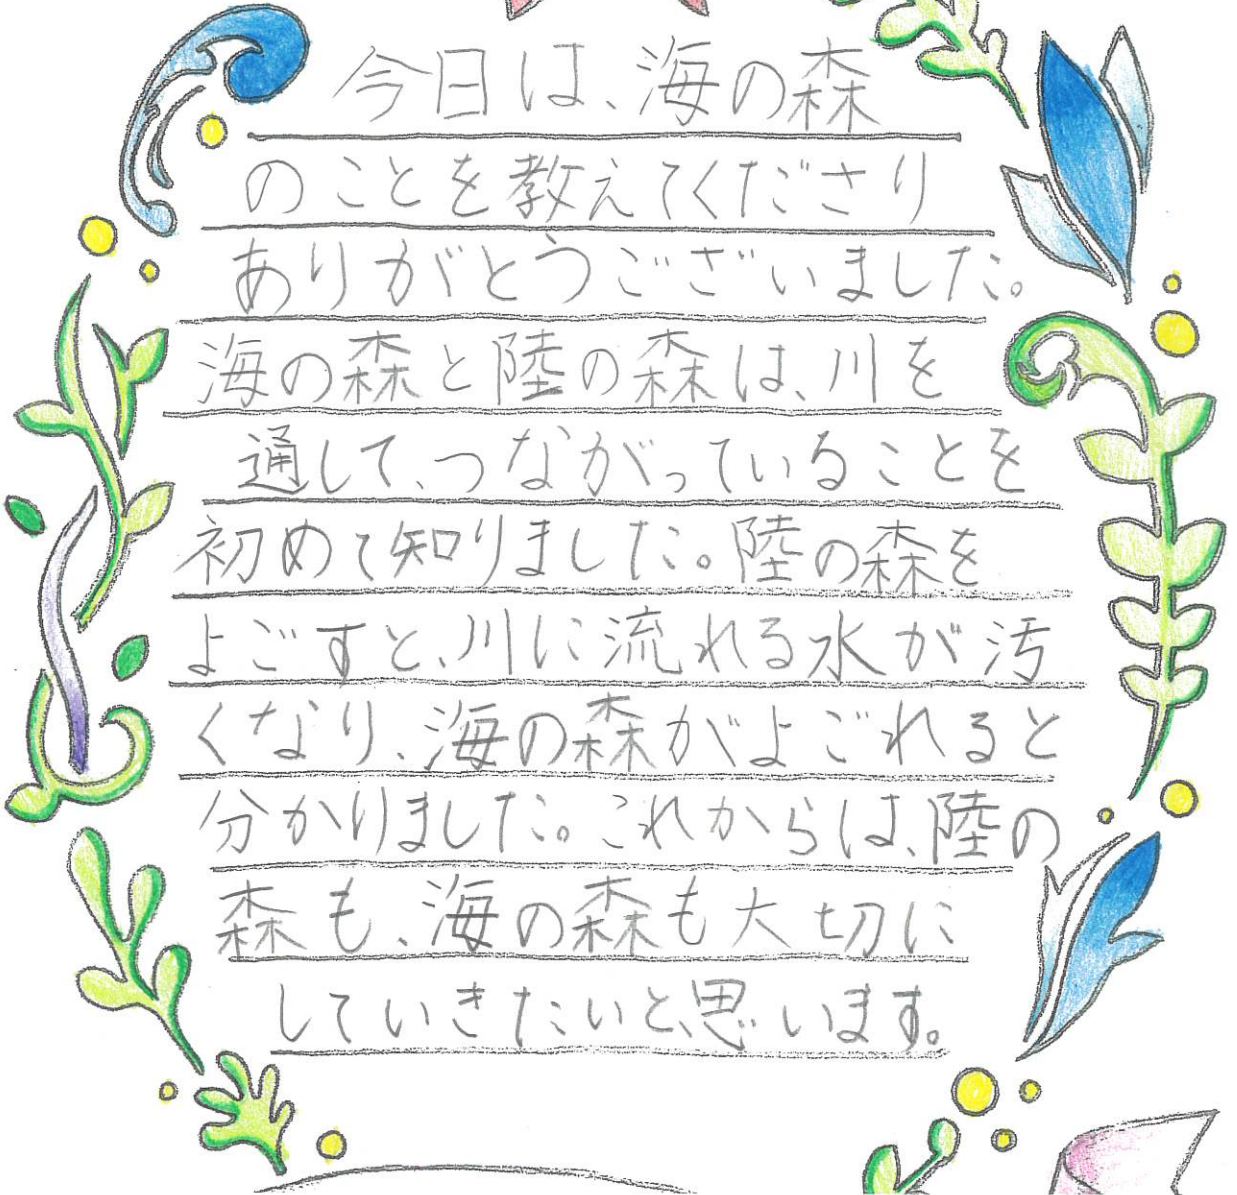 今日は、海の森
のことを教えてくださり
ありがとうございました。
海の森と陸の森は、川を
通して、つながっていることを
初めて知りました。陸の森を
よごすと、川に流れる水が汚
くなり、海の森がよごれると
分かりました。これからは、陸の
森も、海の森も大切に
していきたいと、思います。